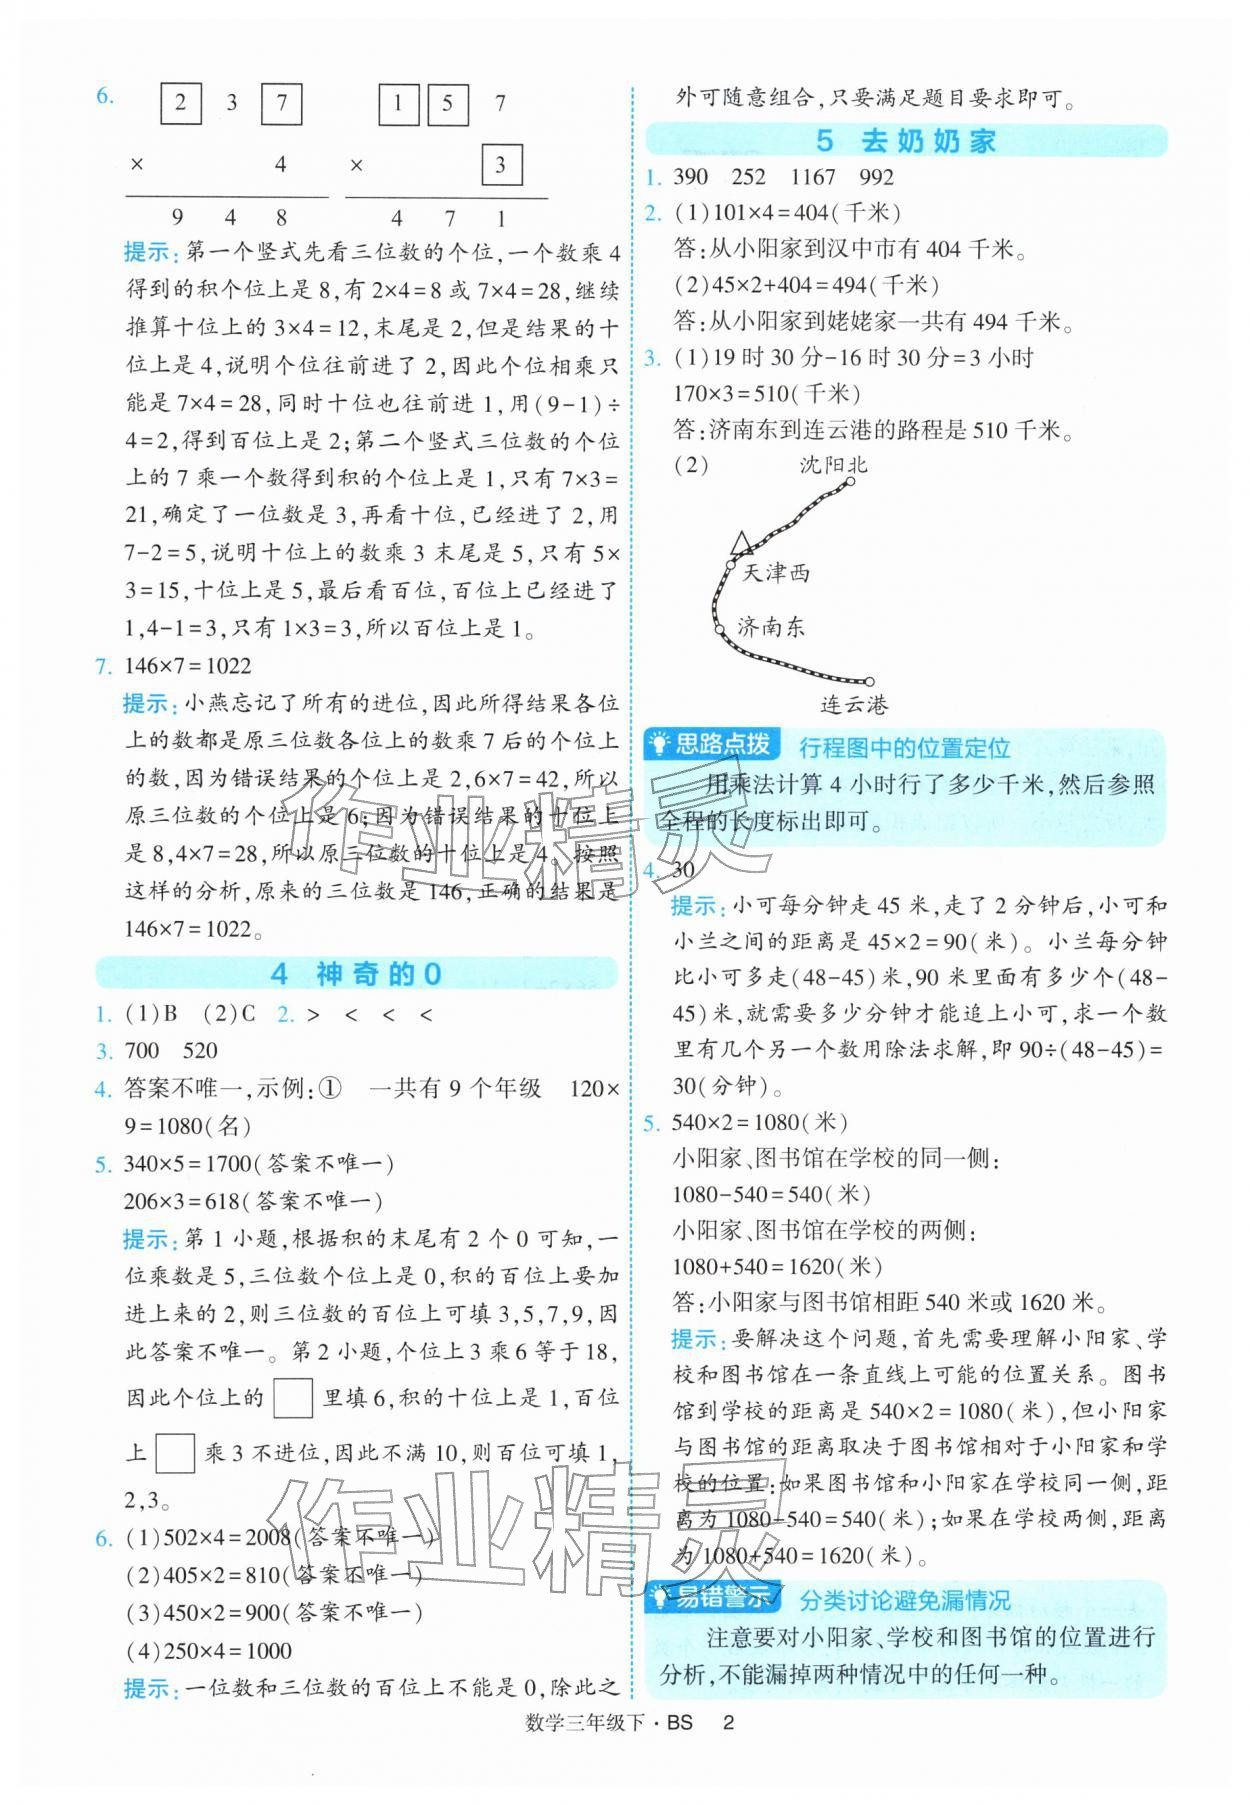 6. 2 3 7
× 4
9 4 8
1 5 7
× 3
4 7 1
提示:第一个竖式先看三位数的个位,一个数乘4
得到的积个位上是8,有2×4=8或7×4=28,继续
推算十位上的3×4=12,末尾是2,但是结果的十
位上是4,说明个位往前进了2,因此个位相乘只
能是7×4=28,同时十位也往前进1,用(9-1)÷
4=2,得到百位上是2;第二个竖式三位数的个位
上的7乘一个数得到积的个位上是1,只有7×3=
21,确定了一位数是3,再看十位,已经进了2,用
7-2=5,说明十位上的数乘3末尾是5,只有5×
3=15,十位上是5,最后看百位,百位上已经进了
1,4-1=3,只有1×3=3,所以百位上是1。
7. 146×7=1022
提示:小燕忘记了所有的进位,因此所得结果各位
上的数都是原三位数各位上的数乘7后的个位上
的数,因为错误结果的个位上是2,6×7=42,所以
原三位数的个位上是6;因为错误结果的十位上
是8,4×7=28,所以原三位数的十位上是4。按照
这样的分析,原来的三位数是146,正确的结果是
146×7=1022。
4 神奇的0
1. (1)B (2)C 2. > < < <
3. 700 520
4. 答案不唯一,示例:① 一共有9个年级 120×
9=1080(名)
5. 340×5=1700(答案不唯一)
206×3=618(答案不唯一)
提示:第1小题,根据积的末尾有2个0可知,一
位乘数是5,三位数个位上是0,积的百位上要加
进上来的2,则三位数的百位上可填3,5,7,9,因
此答案不唯一。第2小题,个位上3乘6等于18,
因此个位上的□里填6,积的十位上是1,百位
上□乘3不进位,因此不满10,则百位可填1,
2,3。
6. (1)502×4=2008(答案不唯一)
(2)405×2=810(答案不唯一)
(3)450×2=900(答案不唯一)
(4)250×4=1000
提示:一位数和三位数的百位上不能是0,除此之
外可随意组合,只要满足题目要求即可。
5 去奶奶家
1. 390 252 1167 992
2. (1)101×4=404(千米)
答:从小阳家到汉中市有404千米。
(2)45×2+404=494(千米)
答:从小阳家到姥姥家一共有494千米。
3. (1)19时30分-16时30分=3小时
170×3=510(千米)
答:济南东到连云港的路程是510千米。
(2) 沈阳北
天津西
济南东
连云港
思路点拨 行程图中的位置定位
用乘法计算4小时行了多少千米,然后参照
全程的长度标出即可。
4. 30
提示:小可每分钟走45米,走了2分钟后,小可和
小兰之间的距离是45×2=90(米)。小兰每分钟
比小可多走(48-45)米,90米里面有多少个(48-
45)米,就需要多少分钟才能追上小可,求一个数
里有几个另一个数用除法求解,即90÷(48-45)=
30(分钟)。
5. 540×2=1080(米)
小阳家、图书馆在学校的同一侧:
1080-540=540(米)
小阳家、图书馆在学校的两侧:
1080+540=1620(米)
答:小阳家与图书馆相距540米或1620米。
提示:要解决这个问题,首先需要理解小阳家、学
校和图书馆在一条直线上可能的位置关系。图书
馆到学校的距离是540×2=1080(米),但小阳家
与图书馆的距离取决于图书馆相对于小阳家和学
校的位置:如果图书馆和小阳家在学校同一侧,距
离为1080-540=540(米);如果在学校两侧,距离
为1080+540=1620(米)。
易错警示 分类讨论避免漏情况
注意要对小阳家、学校和图书馆的位置进行
分析,不能漏掉两种情况中的任何一种。
作业精灵
作业精灵
数学三年级下·BS 2